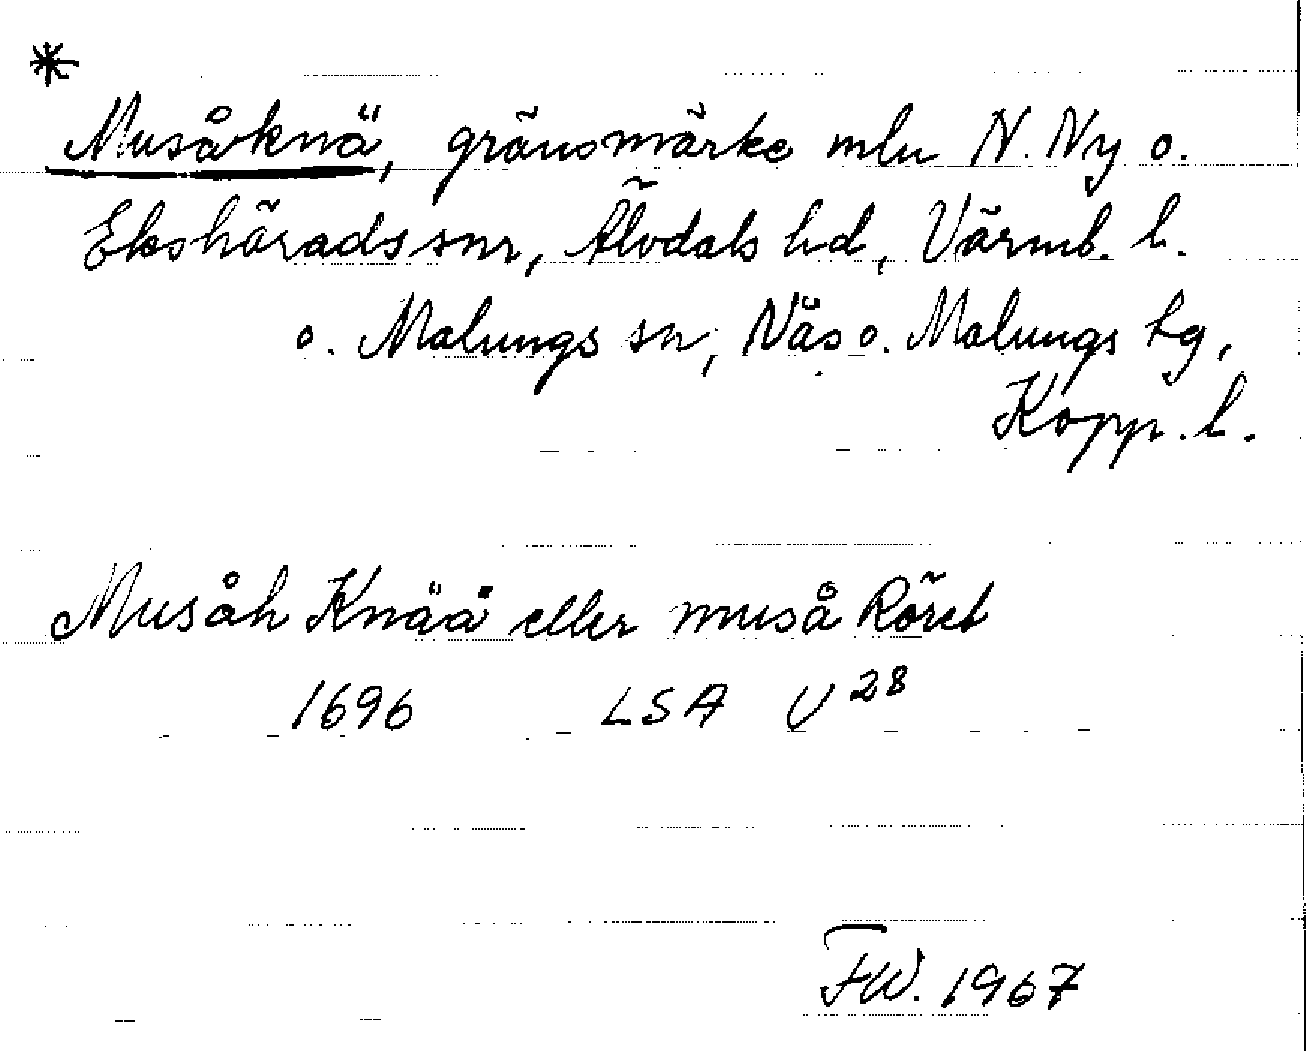 *
Musåknä, gränsmärke mln N. Ny o.
Ekshärads snr, Älvdals hd, Värml. l.
o. Malungs sn, Näs o. Malungs tg,
Kopp. l.
Musåh Knää eller muså Röret
1696 LSA U 28
FW. 1967